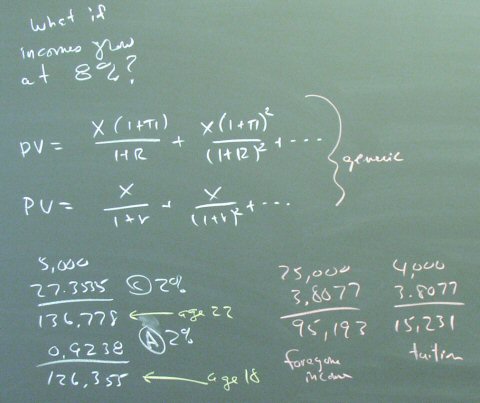 What if
incomes grow
at 8%?
PV = X(1+π)/1+R + X(1+π)²/(1+R)² + ...
generic
PV = X/1+r + X/(1+r)² + ...
5,000
27.3555 Ⓒ 2%
136,778 ← age 22
0.9238 Ⓐ 2%
126,355 ← age 18
25,000
3.8077
95,193
foregone
income
4,000
3.8077
15,231
tuition